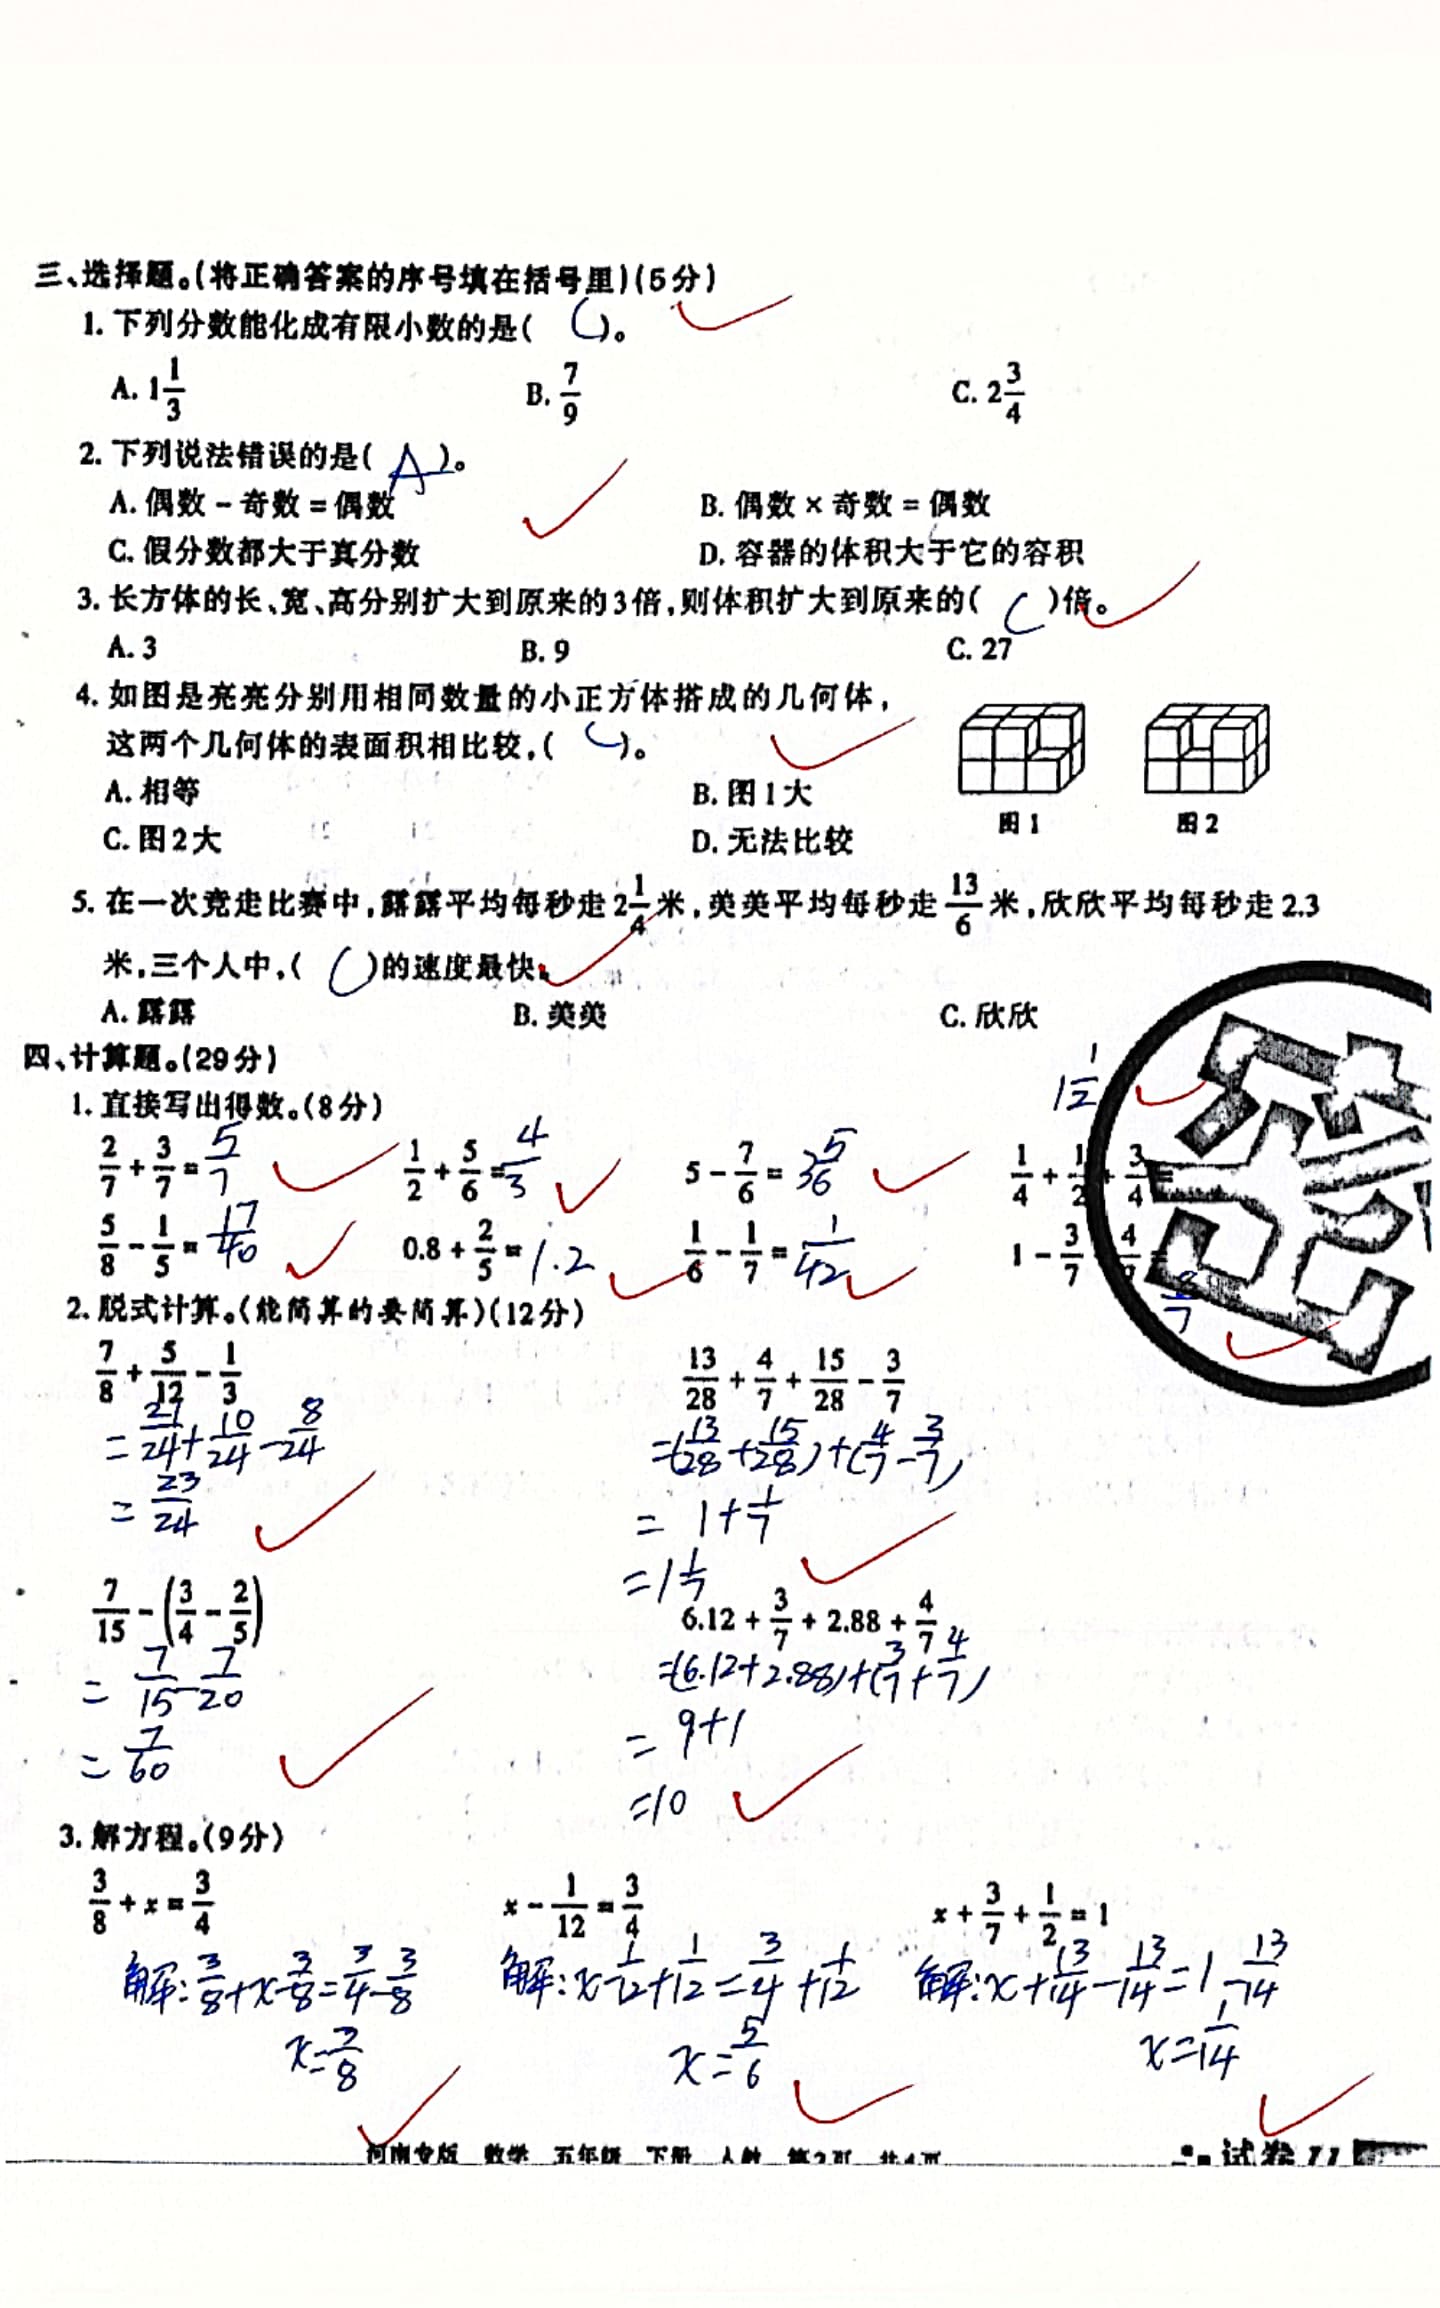 三、选择题。(将正确答案的序号填在括号里)(5分)
1. 下列分数能化成有限小数的是( C )。
A. 1 1/3 B. 7/9 C. 2 3/4
2. 下列说法错误的是( A )。
A. 偶数 - 奇数 = 偶数 B. 偶数 × 奇数 = 偶数
C. 假分数都大于真分数 D. 容器的体积大于它的容积
3. 长方体的长、宽、高分别扩大到原来的3倍,则体积扩大到原来的( C )倍。
A. 3 B. 9 C. 27
4. 如图是亮亮分别用相同数量的小正方体搭成的几何体,
这两个几何体的表面积相比较,( C )。
A. 相等 B. 图1大
C. 图2大 D. 无法比较
图1 图2
5. 在一次竞走比赛中,露露平均每秒走2 1/4米,美美平均每秒走13/6米,欣欣平均每秒走2.3
米,三个人中,( C )的速度最快。
A. 露露 B. 美美 C. 欣欣
四、计算题。(29分)
1. 直接写出得数。(8分)
2/7 + 3/7 = 5/7 1/2 + 5/6 = 4/3 5 - 7/6 = 3 5/6 1/4 + 1/2 + 3/4 = 1 1/2
5/8 - 1/5 = 17/40 0.8 + 2/5 = 1.2 1/6 - 1/7 = 1/42 1 - 3/7 + 4/7 = 8/7
2. 脱式计算。(能简算的要简算)(12分)
7/8 + 5/12 - 1/3 13/28 + 4/7 + 15/28 - 3/7
= 21/24 + 10/24 - 8/24 = (13/28 + 15/28) + (4/7 - 3/7)
= 23/24 = 1 + 1/7
= 1 1/7
7/15 - (3/4 - 2/5) 6.12 + 3/7 + 2.88 + 4/7
= 7/15 - 7/20 = (6.12 + 2.88) + (3/7 + 4/7)
= 7/60 = 9 + 1
= 10
3. 解方程。(9分)
3/8 + x = 3/4 x - 1/12 = 3/4 x + 3/7 + 1/2 = 1
解: 3/8 + x - 3/8 = 3/4 - 3/8 解: x - 1/12 + 1/12 = 3/4 + 1/12 解: x + 13/14 - 13/14 = 1 - 13/14
x = 3/8 x = 5/6 x = 1/14
河南专版 数学 五年级 下册 人教 第2页 共4页 试卷11